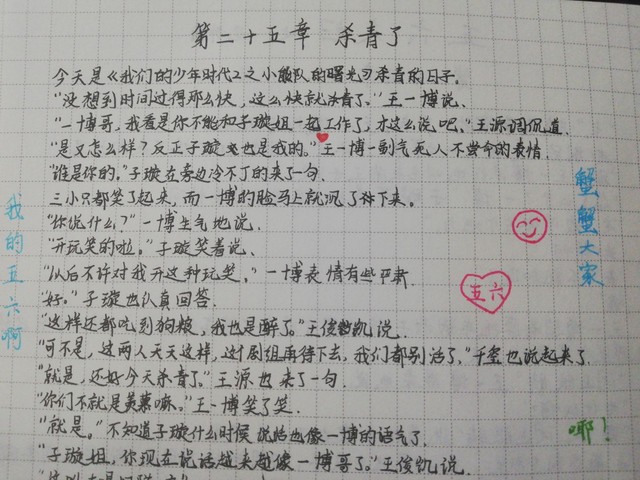 第二十五章 杀青了
今天是《我们的少年时代2之小熊队的曙光》杀青的日子.
"没想到时间过得那么快,这么快就杀青了."王一博说.
"一博哥,我看是你不能和子璇姐一起工作了,才这么说吧."王源调侃道.
"是又怎么样?反正子璇也是我的."王一博一副气死人不尝命的表情.
"谁是你的."子璇在旁边冷不丁的来了一句.
三小只都笑了起来,而一博的脸马上就沉了下来.
"你说什么?"一博生气地说.
"开玩笑的啦."子璇笑着说.
"以后不许对我开这种玩笑."一博表情有些严肃.
"好."子璇也认真回答.
"这样还都吃到狗粮,我也是醉了."王俊凯说.
"可不是,这两人天天这样,这个剧组再待下去,我们都别活了."千玺也说起来了.
"就是,还好今天杀青了."王源也来了一句.
"你们不就是羡慕嘛."王一博笑了笑.
"就是."不知道子璇什么时候说话也像一博的语气了.
"子璇姐,你现在说话越来越像一博哥了."王俊凯说.
我的五六啊
蟹蟹大家
五六
耶!